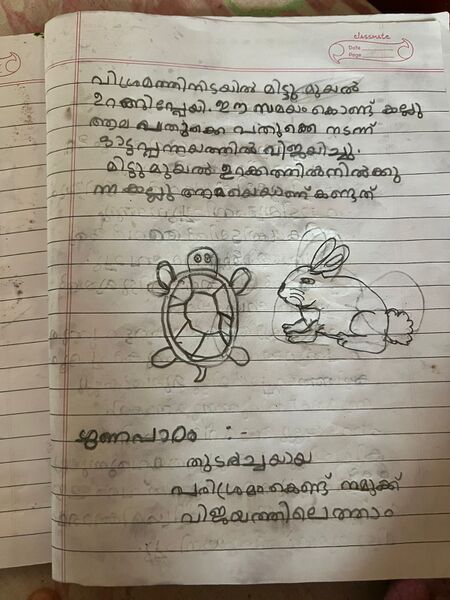 classmate
Date
Page
വിശ്രമത്തിനിടയിൽ മിട്ടു മുയൽ
ഉറങ്ങിപ്പോയി. ഈ സമയം കൊണ്ട് കല്ലു
ആമ പതുക്കെ പതുക്കെ നടന്ന്
ഓട്ടപ്പന്തയത്തിൽ വിജയിച്ചു.
മിട്ടു മുയൽ ഉറക്കത്തിൽനിൽക്കു
ന്ന കല്ലു ആമയെയാണ് കണ്ടത്
ഗുണപാഠം :-
തുടർച്ചയായ
പരിശ്രമംകൊണ്ട് നമുക്ക്
വിജയത്തിലെത്താം